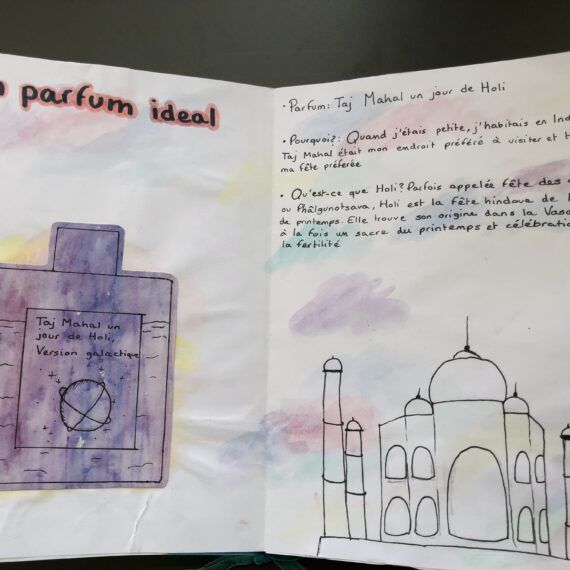 parfum ideal
Taj Mahal un
jour de Holi,
Version galactique
• Parfum: Taj Mahal un jour de Holi
• Pourquoi?: Quand j'étais petite, j'habitais en Ind
Taj Mahal était mon endroit préféré à visiter et H
ma fête préferée
• Qu'est-ce que Holi? Parfois appelée fête des
ou Phâlgunotsava, Holi est la fête hindoue de l
de printemps. Elle trouve son origine dans la Vaso
à la fois un sacre du printemps et célébratio
la fertilité